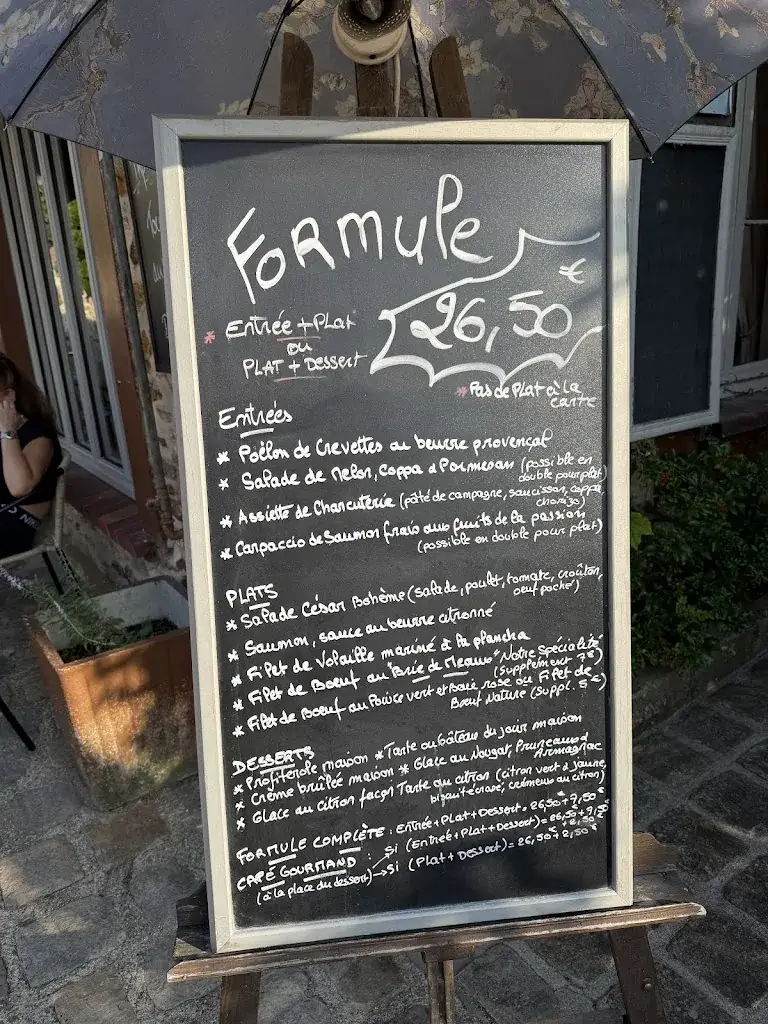 FORMULE
26,50 €
* Entrée + PLat
ou
PLAT + Dessert
* Pas de Plat à la
carte
Entrées
* Poêlon de Crevettes au beurre provençal
* Salade de Melon, Coppa & Parmesan (possible en
double pour plat)
* Assiette de Charcuterie (pâté de campagne, saucisson, coppa,
chorizo)
* Carpaccio de Saumon frais aux fruits de la passion
(possible en double pour plat)
PLATS
* Salade César Bohème (salade, poulet, tomate, croûton,
oeuf poché)
* Saumon, sauce au beurre citronné
* Filet de Volaille mariné à la plancha
* Filet de Boeuf au "Brie de Meaux" "Notre Spécialité"
(Supplément 7€)
* Filet de Boeuf au Poivre vert et Baie rose ou Filet de
Boeuf Nature (Suppl. 5€)
DESSERTS
* Profiterole maison * Tarte ou Gâteau du jour maison
* Crème brûlée maison * Glace au Nougat, Pruneaux &
Armagnac
* Glace au citron façon Tarte au citron (citron vert & jaune,
biscuit écrasé, crémeux au citron)
FORMULE COMPLÈTE : Entrée + Plat + Dessert = 26,50€ + 9,50€
CAFÉ GOURMAND : Si (Entrée + Plat + Dessert) = 26,50€ + 9,50€
+ 2,50€
(à la place du dessert) → Si (Plat + Dessert) = 26,50€ + 2,50€